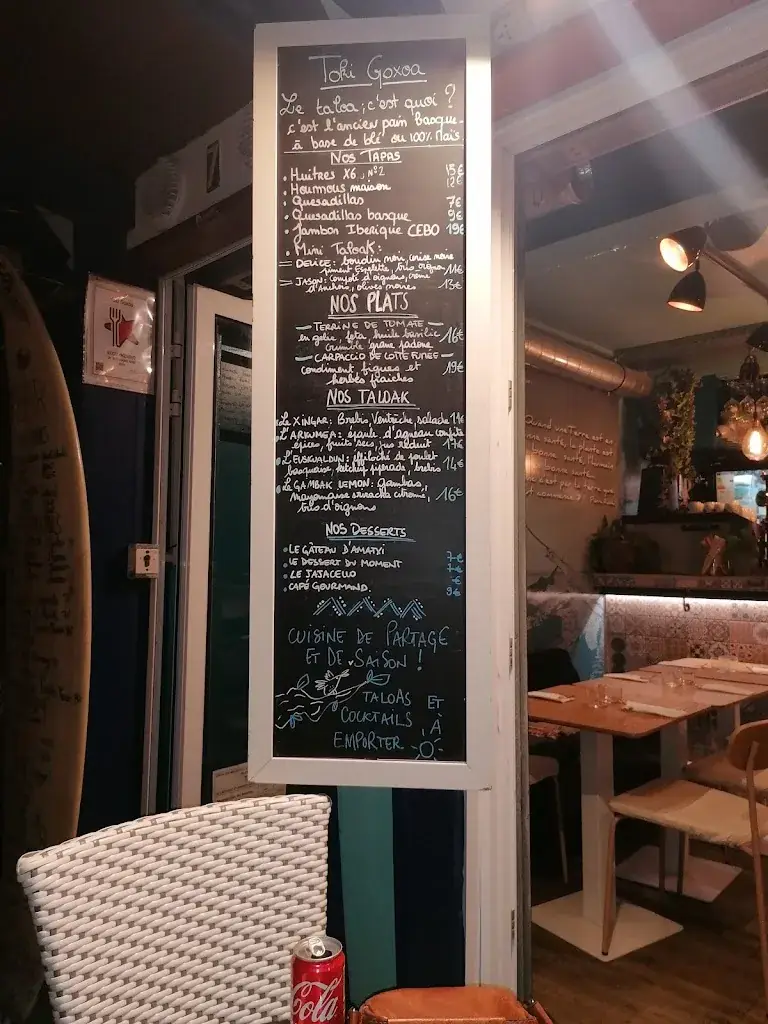 Toki Goxoa
Le taloa ; c'est quoi ?
c'est l'ancien pain Basque
à base de blé ou 100% Maïs.
NOS TAPAS
Huîtres X6 N°2 15€
Houmous maison 12€
Quesadillas 7€
Quesadillas basque 9€
Jambon Iberique CEBO 19€
Mini Taloak :
DELICE : boudin noir, cerise noire
piment Espelette, bris oignon 11€
JASON : Compoté d'oignons, crème
d'Anchois, olives noires 13€
NOS PLATS
TERRINE DE TOMATE
en gelée, feta huile basilic 16€
crumble grane padone
CARPACCIO DE LOTTE FUMÉE
condiment figues et 19€
herbes fraiches
NOS TALOAK
Le XINGAR : Brebis, Ventrèche, salade 11€
L'ARKUMEA : épaule d'agneau confite
épices, fruits secs, jus réduit 17€
L'EUSKALDUN : éffiloché de poulet
basquaise, ketchup piperade, brebis 14€
Le GAMBAK LEMON : Gambas,
mayonnaise sriracha citronné, 16€
bris d'oignons
NOS DESSERTS
LE GÂTEAU D'AMATXI 7€
LE DESSERT DU MOMENT 7€
LE JAJACELLO €
CAFÉ GOURMAND. 9€
CUISINE DE PARTAGE
ET DE SAISON !
TALOAS ET
COCKTAILS À
EMPORTER
Quand une Terre est en
Cola